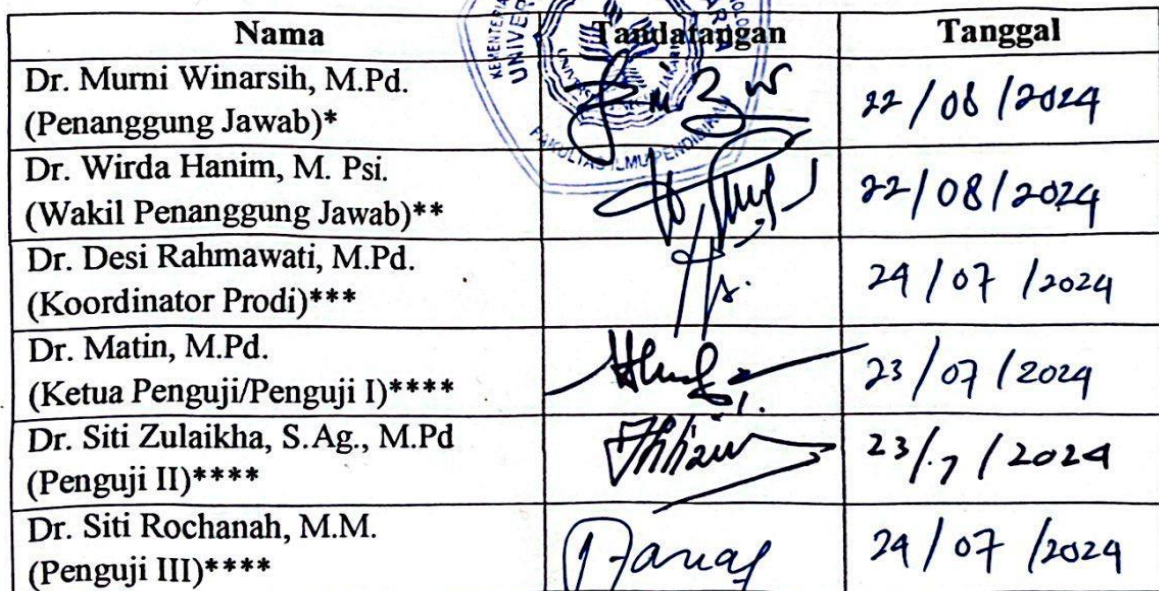 Nama Tandatangan Tanggal
Dr. Murni Winarsih, M.Pd.
(Penanggung Jawab)* 22/08/2024
Dr. Wirda Hanim, M. Psi.
(Wakil Penanggung Jawab)** 22/08/2024
Dr. Desi Rahmawati, M.Pd.
(Koordinator Prodi)*** 24/07/2024
Dr. Matin, M.Pd.
(Ketua Penguji/Penguji I)**** 23/07/2024
Dr. Siti Zulaikha, S.Ag., M.Pd
(Penguji II)**** 23/.7/2024
Dr. Siti Rochanah, M.M.
(Penguji III)**** 24/07/2024
FAKULTAS ILMU PENDIDIKAN